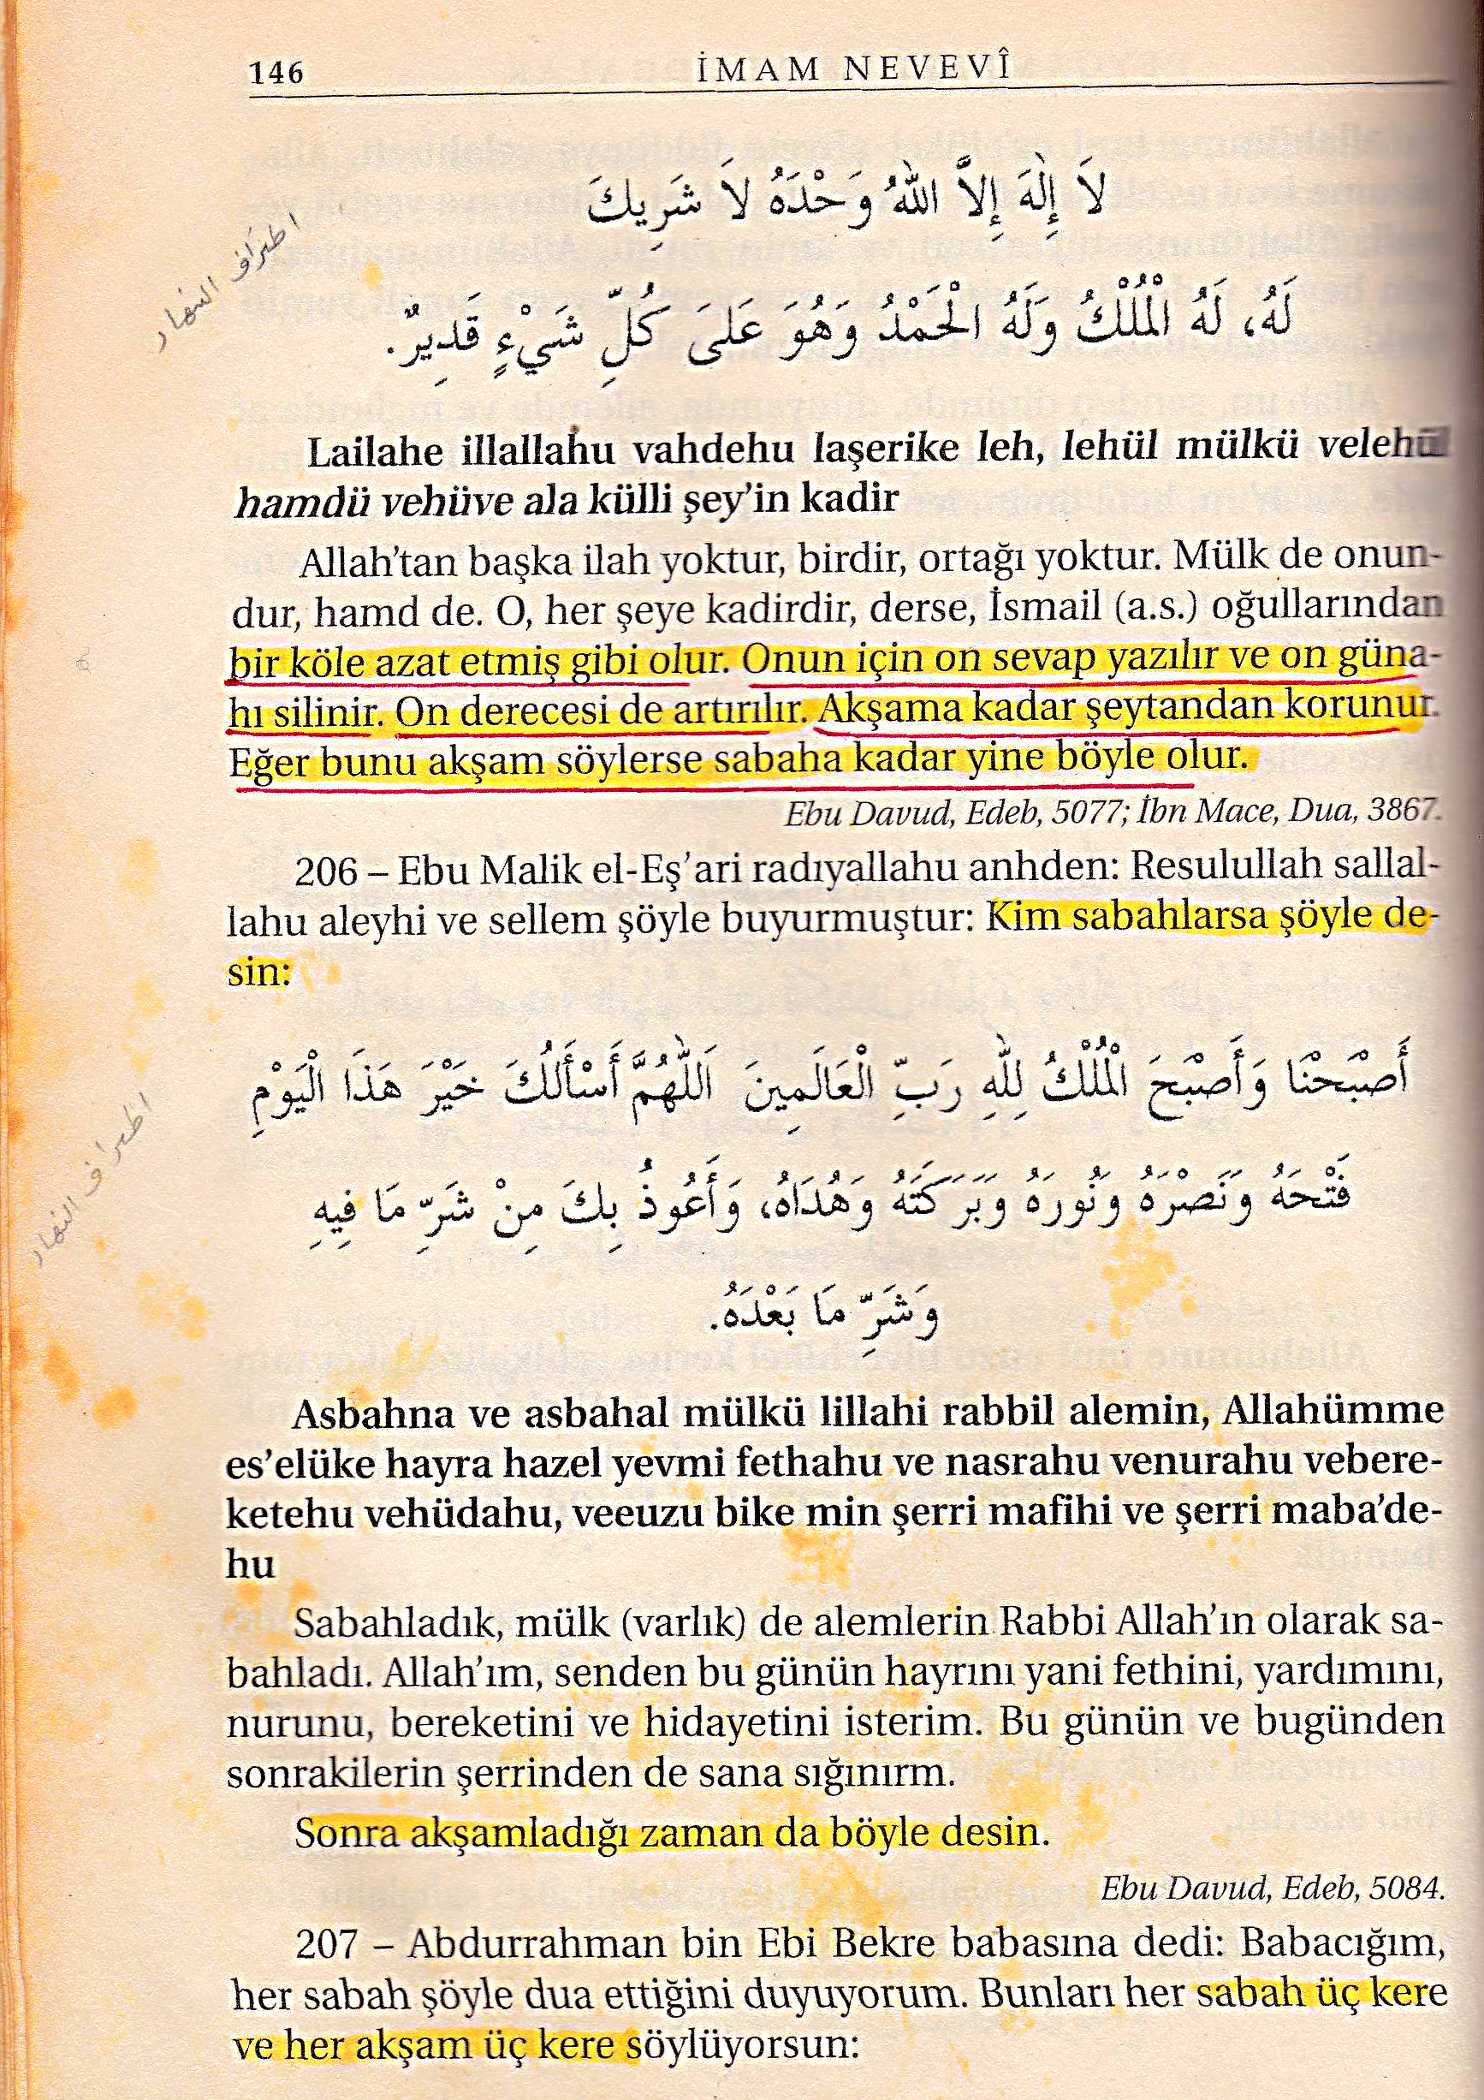 146
İMAM NEVEVÎ
لاَ إِلَهَ إِلاَّ اللهُ وَحْدَهُ لاَ شَرِيكَ
اطراف النهار
لَهُ، لَهُ الْمُلْكُ وَلَهُ الْحَمْدُ وَهُوَ عَلَىَ كُلِّ شَيْءٍ قَدِيرٌ.
Lailahe illallahu vahdehu laşerike leh, lehül mülkü velehül
hamdü vehüve ala külli şey'in kadir
Allah'tan başka ilah yoktur, birdir, ortağı yoktur. Mülk de onun-
dur, hamd de. O, her şeye kadirdir, derse, İsmail (a.s.) oğullarından
bir köle azat etmiş gibi olur. Onun için on sevap yazılır ve on güna-
hı silinir. On derecesi de artırılır. Akşama kadar şeytandan korunur.
Eğer bunu akşam söylerse sabaha kadar yine böyle olur.
Ebu Davud, Edeb, 5077; İbn Mace, Dua, 3867.
206 – Ebu Malik el-Eş'ari radıyallahu anhden: Resulullah sallal-
lahu aleyhi ve sellem şöyle buyurmuştur: Kim sabahlarsa şöyle de-
sin:
أَصْبَحْنَا وَأَصْبَحَ الْمُلْكُ لِلَّهِ رَبِّ الْعَالَمِينَ اَللَّهُمَّ أَسْأَلُكَ خَيْرَ هَذَا الْيَوْمِ
اطراف النهار
فَتْحَهُ وَنَصْرَهُ وَنُورَهُ وَبَرَكَتَهُ وَهُدَاهُ، وَأَعُوذُ بِكَ مِنْ شَرِّ مَا فِيهِ
وَشَرِّ مَا بَعْدَهُ.
Asbahna ve asbahal mülkü lillahi rabbil alemin, Allahümme
es'elüke hayra hazel yevmi fethahu ve nasrahu venurahu vebere-
ketehu vehüdahu, veeuzu bike min şerri mafihi ve şerri maba'de-
hu
Sabahladık, mülk (varlık) de alemlerin Rabbi Allah'ın olarak sa-
bahladı. Allah'ım, senden bu günün hayrını yani fethini, yardımını,
nurunu, bereketini ve hidayetini isterim. Bu günün ve bugünden
sonrakilerin şerrinden de sana sığınırm.
Sonra akşamladığı zaman da böyle desin.
Ebu Davud, Edeb, 5084.
207 – Abdurrahman bin Ebi Bekre babasına dedi: Babacığım,
her sabah şöyle dua ettiğini duyuyorum. Bunları her sabah üç kere
ve her akşam üç kere söylüyorsun: